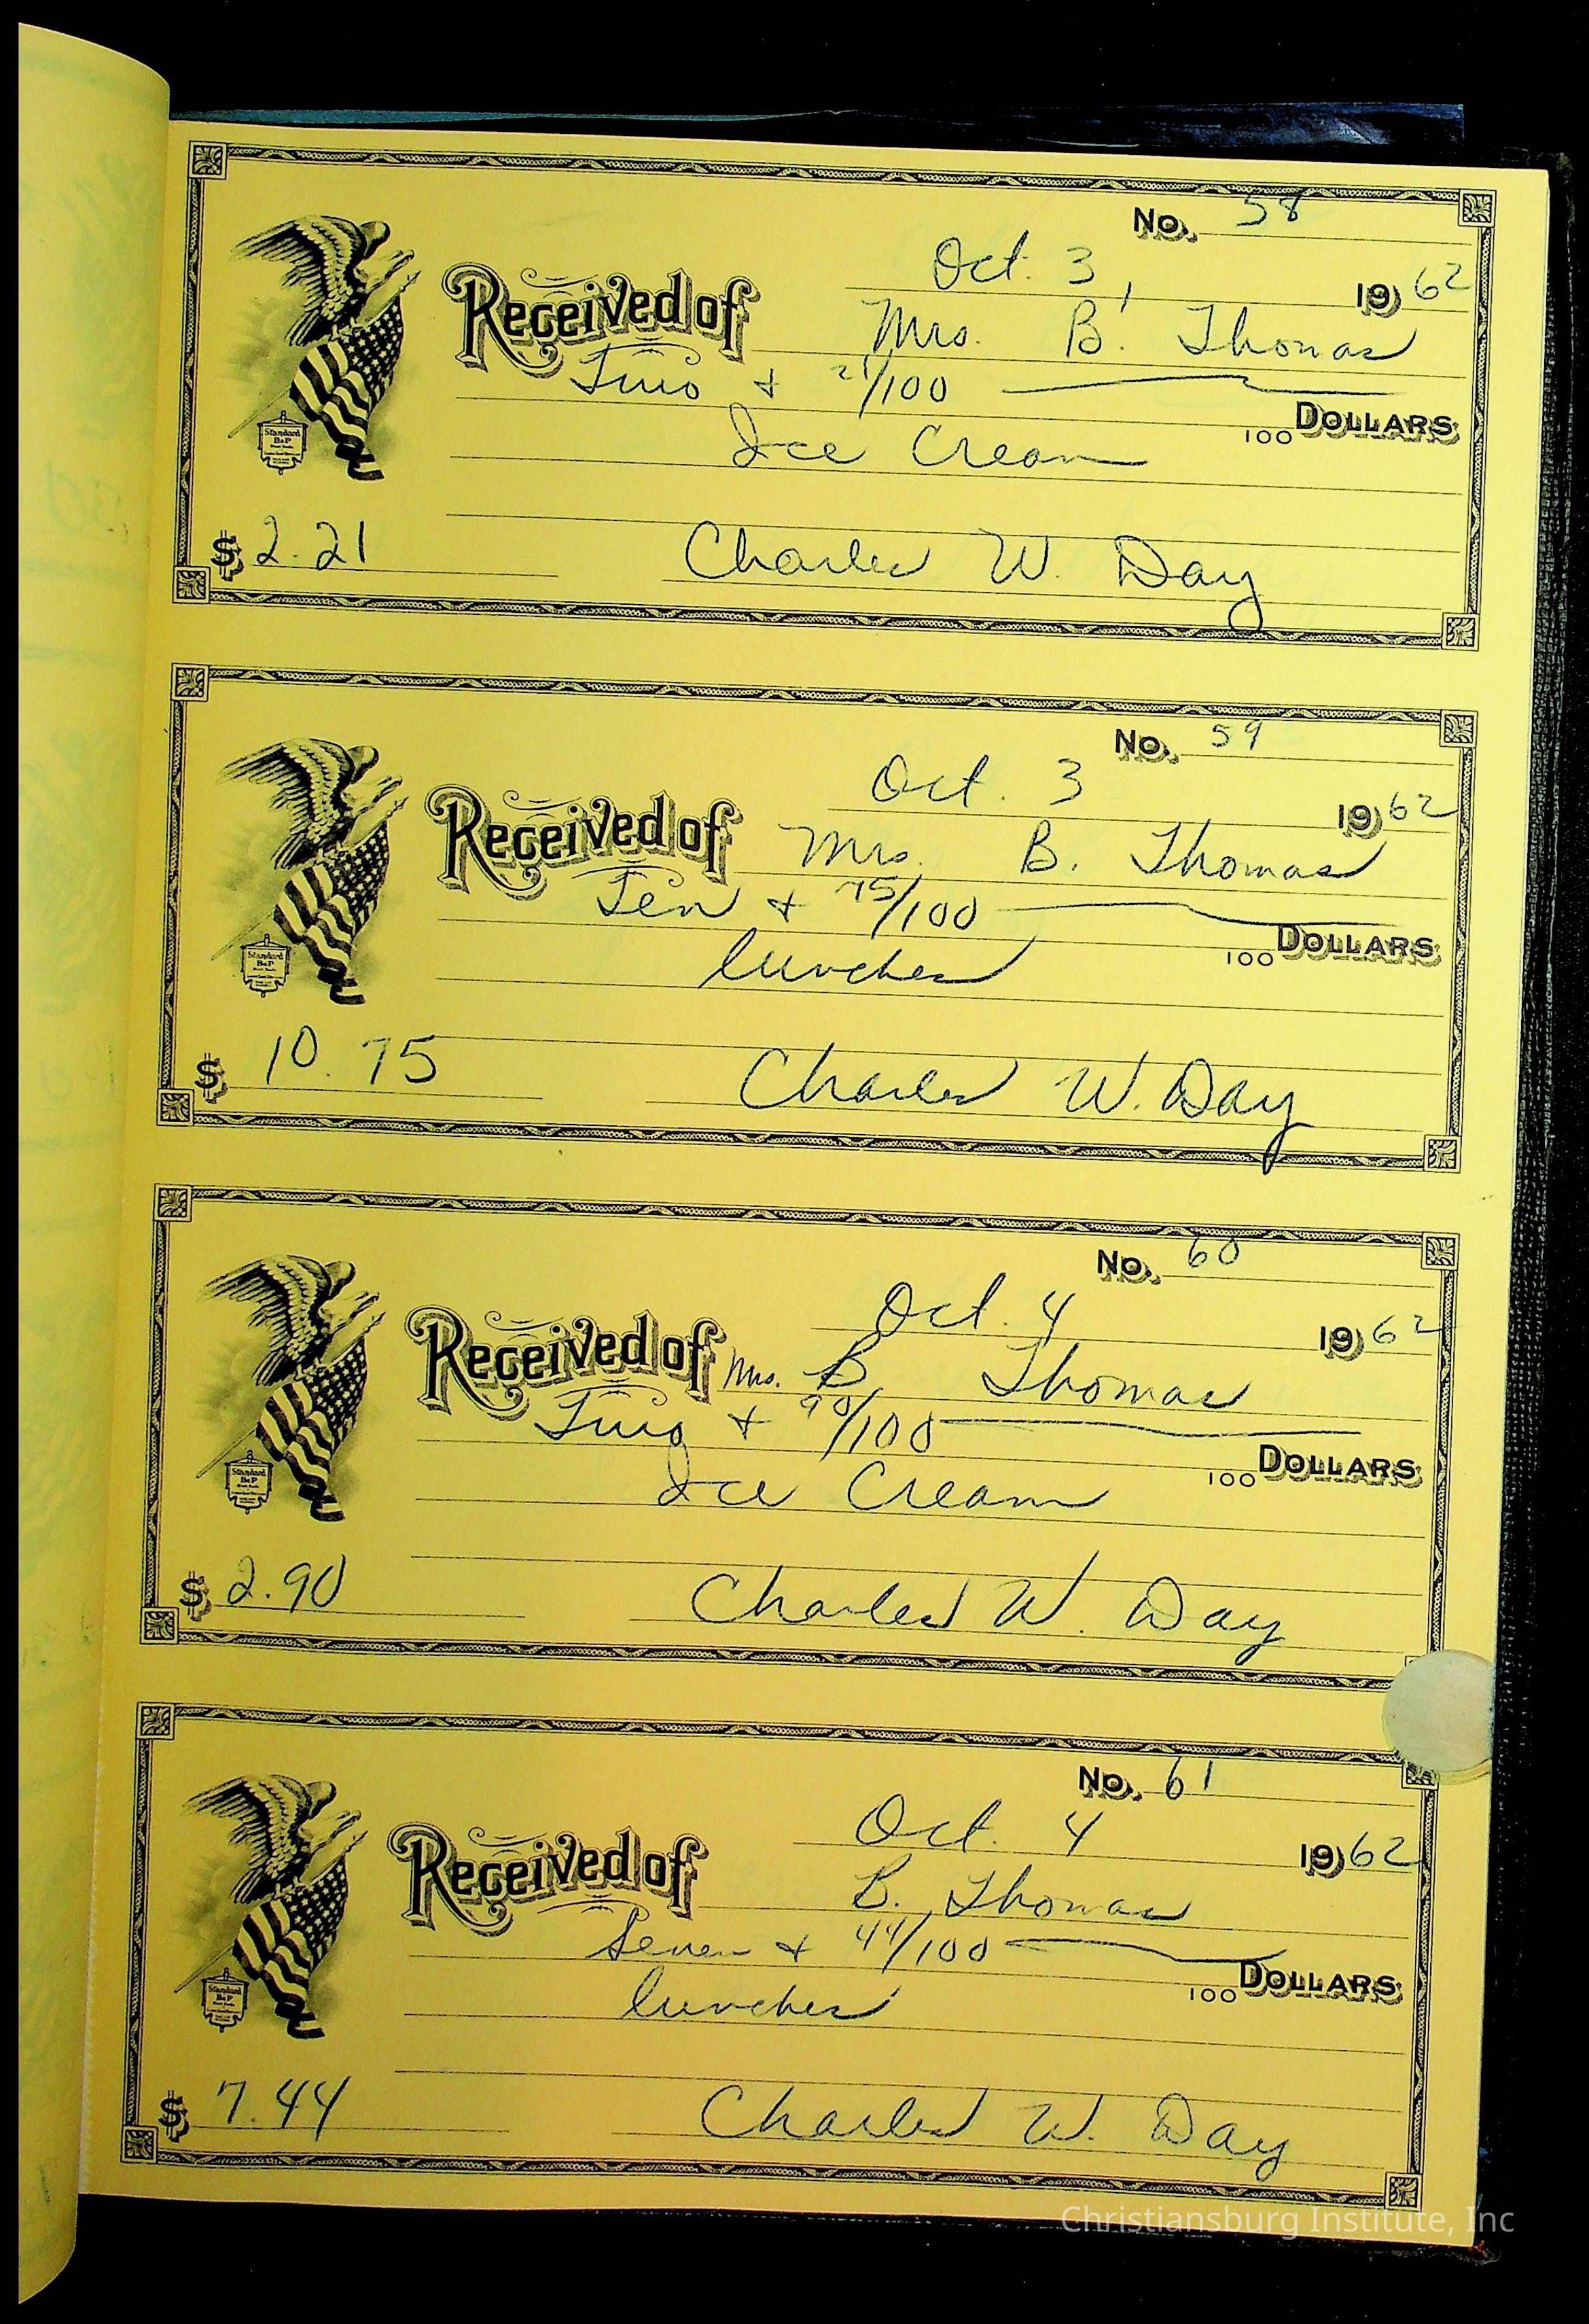 No. 58
Oct. 3, 1962
Received of Mrs. B. Thomas
Two & 21/100
100 DOLLARS
Ice Cream
Standard
B&P
$ 2.21 Charles W. Day
No. 59
Oct. 3 1962
Received of Mrs. B. Thomas
Ten & 75/100
100 DOLLARS
lunches
Standard
B&P
$ 10.75 Charles W. Day
No. 60
Oct. 4 1962
Received of Mrs. B Thomas
Two & 90/100
100 DOLLARS
Ice Cream
Standard
B&P
$ 2.90 Charles W. Day
No. 61
Oct. 4 1962
Received of B. Thomas
Seven & 44/100
100 DOLLARS
lunches
Standard
B&P
$ 7.44 Charles W. Day
Christiansburg Institute, Inc